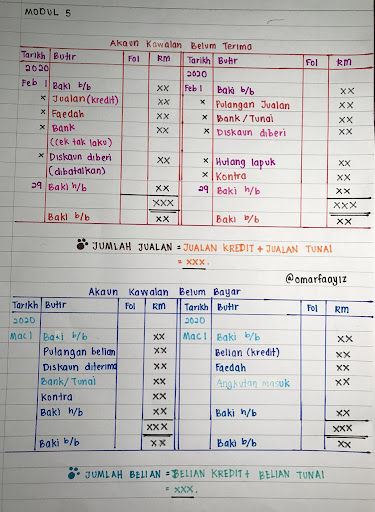 MODUL 5
Akaun Kawalan Belum Terima
Tarikh Butir Fol RM Tarikh Butir Fol RM
2020 2020
Feb 1 Baki b/b xx Feb 1 Baki b/b xx
x Jualan (kredit) xx x Pulangan Jualan xx
x Faedah xx x Bank/Tunai xx
x Bank xx x Diskaun diberi xx
(cek tak laku)
x Diskaun diberi xx x Hutang lapuk xx
(dibatalkan) x Kontra xx
29 Baki h/b xx 29 Baki h/b xx
xxx xxx
Baki b/b xx Baki b/b xx
JUMLAH JUALAN = JUALAN KREDIT + JUALAN TUNAI
= xxx.
@omarfaayiz
Akaun Kawalan Belum Bayar
Tarikh Butir Fol RM Tarikh Butir Fol RM
2020 2020
Mac 1 Baki b/b xx Mac 1 Baki b/b xx
Pulangan belian xx Belian (kredit) xx
Diskaun diterima xx Faedah xx
Bank/Tunai xx Angkutan masuk xx
Kontra xx
Baki h/b xx Baki h/b xx
xxx xxx
Baki b/b xx Baki b/b xx
JUMLAH BELIAN = BELIAN KREDIT + BELIAN TUNAI
= xxx.